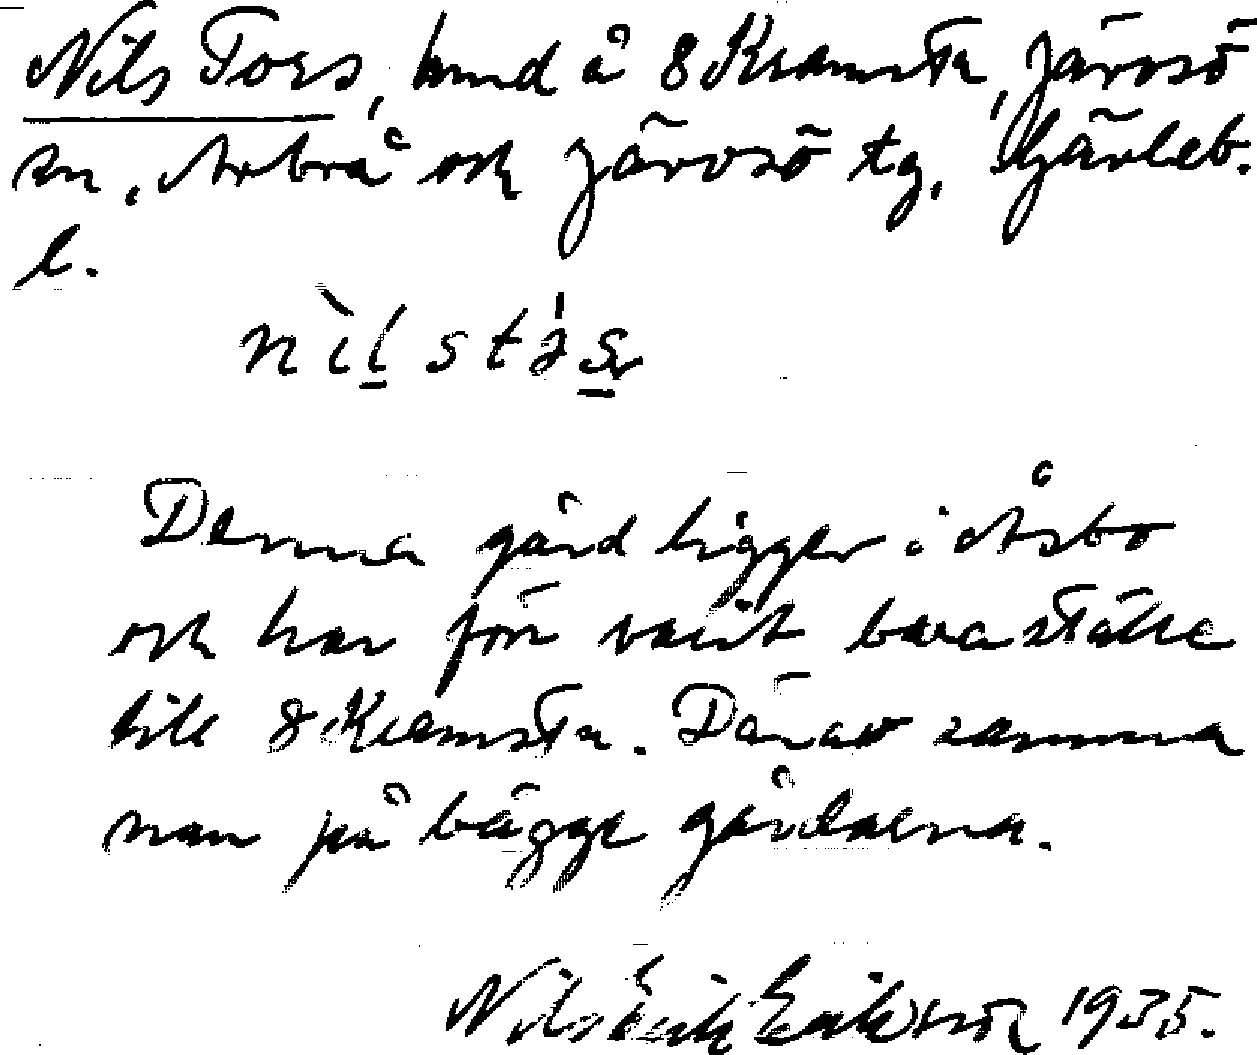 Nils Tors, hmd å 8 Kramsta, Järvsö
sn, Arbrå och Järvsö tg, Gävleb.
l.
Denna gård ligger i Åsbo
och har förr varit buaställe
till 8 Kramsta. Därav samma
namn på bägge gårdarna.
Nils Erik Eriksson 1935.